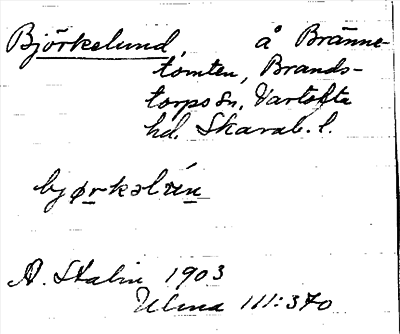 Björkelund, å Bränne-
tomten, Brands-
torps sn, Vartofta
hd. Skarab. l.
A. Stalin 1903
Ulma 111:370